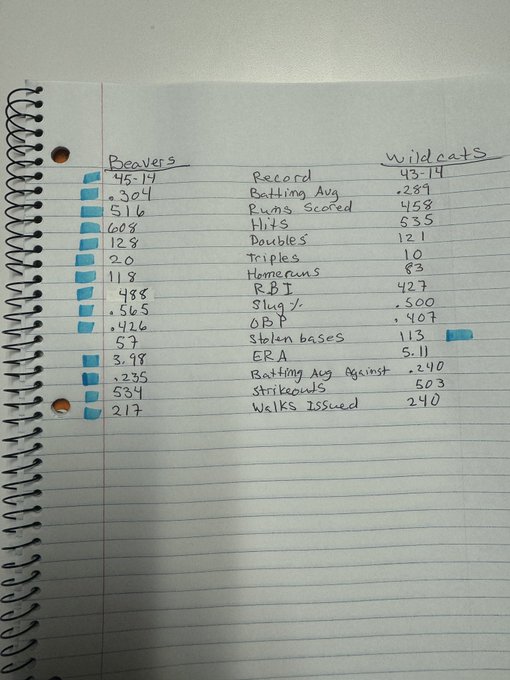 Beavers Wildcats
45-14 Record 43-14
.304 Batting Avg .289
516 Runs Scored 458
608 Hits 535
128 Doubles 121
20 Triples 10
118 Homeruns 83
488 RBI 427
.565 Slug % .500
.426 OBP .407
57 Stolen bases 113
3.98 ERA 5.11
.235 Batting Avg Against .240
534 Strikeouts 503
217 Walks Issued 240